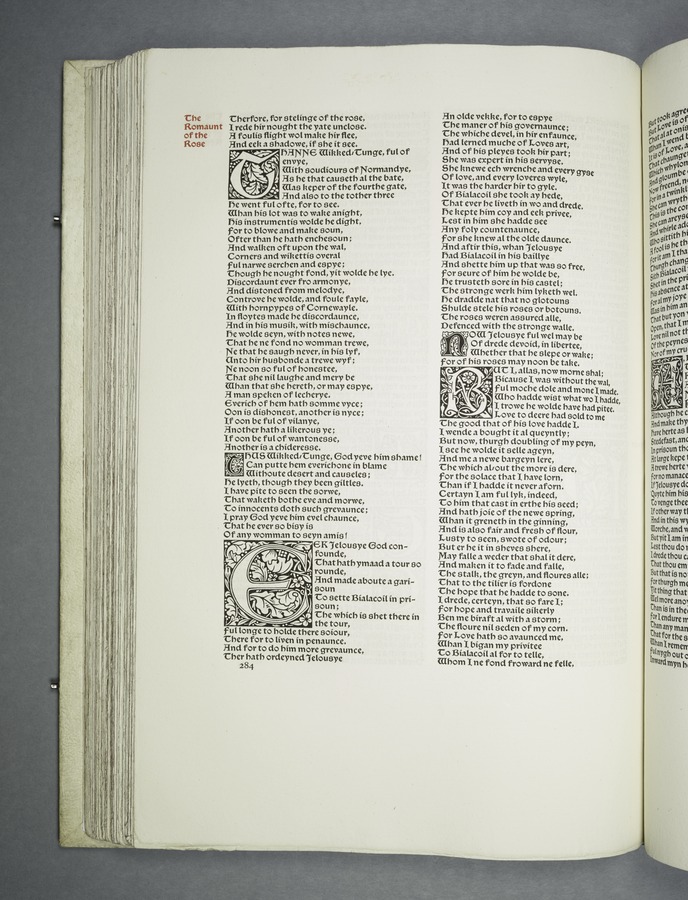 The
Romaunt
of the
Rose
Therfore, for stelinge of the rose,
I rede hir nought the yate unclose.
A foulis flight wol make hir flee,
And eek a shadowe, if she it see.
THANNE Wikked/Tunge, ful of
envye,
With soudiours of Normandye,
As he that causeth al the bate,
Was keper of the fourthe gate,
And also to the tother three
He went ful ofte, for to see.
Whan his lot was to wake anight,
His instrumentis wolde he dight,
For to blowe and make soun,
Ofter than he hath enchesoun;
And walken oft upon the wal,
Corners and wikettis overal
Ful narwe serchen and espye;
Though he nought fond, yit wolde he lye.
Discordaunt ever fro armonye,
And distoned from melodye,
Controve he wolde, and foule fayle,
With hornpypes of Cornewayle.
In floytes made he discordaunce,
And in his musik, with mischaunce,
He wolde seyn, with notes newe,
That he ne fond no womman trewe,
Ne that he saugh never, in his lyf,
Unto hir husbonde a trewe wyf;
Ne noon so ful of honestee,
That she nil laughe and mery be
Whan that she hereth, or may espye,
A man speken of lecherye.
Everich of hem hath somme vyce;
Oon is dishonest, another is nyce;
If oon be ful of vilanye,
Another hath a likerous ye;
If oon be ful of wantonesse,
Another is a chideresse.
THUS Wikked/Tunge, God yeve him shame!
Can putte hem everichone in blame
Withoute desert and causeles;
He lyeth, though they been giltles.
I have pite to seen the sorwe,
That waketh bothe eve and morwe,
To innocents doth such grevaunce;
I pray God yeve him evel chaunce,
That he ever so bisy is
Of any womman to seyn amis!
EEK Jelousye God con-
founde,
That hath ymaad a tour so
rounde,
And made aboute a gari-
soun
To sette Bialacoil in pri-
soun;
The which is shet there in
the tour,
Ful longe to holde there soiour,
There for to liven in penaunce.
And for to do him more grevaunce,
Ther hath ordeyned Jelousye
284
An olde vekke, for to espye
The maner of his governaunce;
The whiche devel, in hir enfaunce,
Had lerned muche of Loves art,
And of his pleyes took hir part;
She was expert in his servyse.
She knewe ech wrenche and every gyse
Of love, and every loveres wyle,
It was the harder hir to gyle.
Of Bialacoil she took ay hede,
That ever he liveth in wo and drede.
He kepte him coy and eek privee,
Lest in him she hadde see
Any foly countenaunce,
For she knew al the olde daunce.
And after this, whan Jelousye
Had Bialacoil in his baillye
And shette him up that was so free,
For seure of him he wolde be,
He trusteth sore in his castel;
The stronge werk him lyketh wel.
He dradde nat that no glotouns
Shulde stele his roses or botouns.
The roses weren assured alle,
Defenced with the stronge walle.
NOW Jelousye ful wel may be
Of drede devoid, in libertee,
Whether that he slepe or wake;
For of his roses may noon be take.
BUT I, allas, now morne shal;
Bicause I was withoute the wal,
Ful moche dole and mone I made.
Who hadde wist what wo I hadde,
I trowe he wolde have had pitee.
Love to deere had sold to me
The good that of his love hadde I.
I wende a bought it al queyntly;
But now, thurgh doubling of my peyn,
I see he wolde it selle ageyn,
And me a newe bargeyn lere,
The which al/out the more is dere,
For the solace that I have lorn,
Than if I hadde it never aforn.
Certayn I am ful lyk, indeed,
To him that cast in erthe his seed;
And hath joie of the newe spring,
Whan it greneth in the ginning,
And is also fair and fresh of flour,
Lusty to seen, swote of odour;
But er he it in sheves shere,
May falle a weder that shal it dere,
And maken it to fade and falle,
The stalk, the greyn, and floures alle;
That to the tilier is fordone
The hope that he hadde to sone.
I drede, certeyn, that so fare I;
For hope and travaile sikerly
Ben me biraft al with a storm;
The floure nil seden of my corn.
For Love hath so avaunced me,
Whan I bigan my privitee
To Bialacoil al for to telle,
Whom I ne fond froward ne felle,